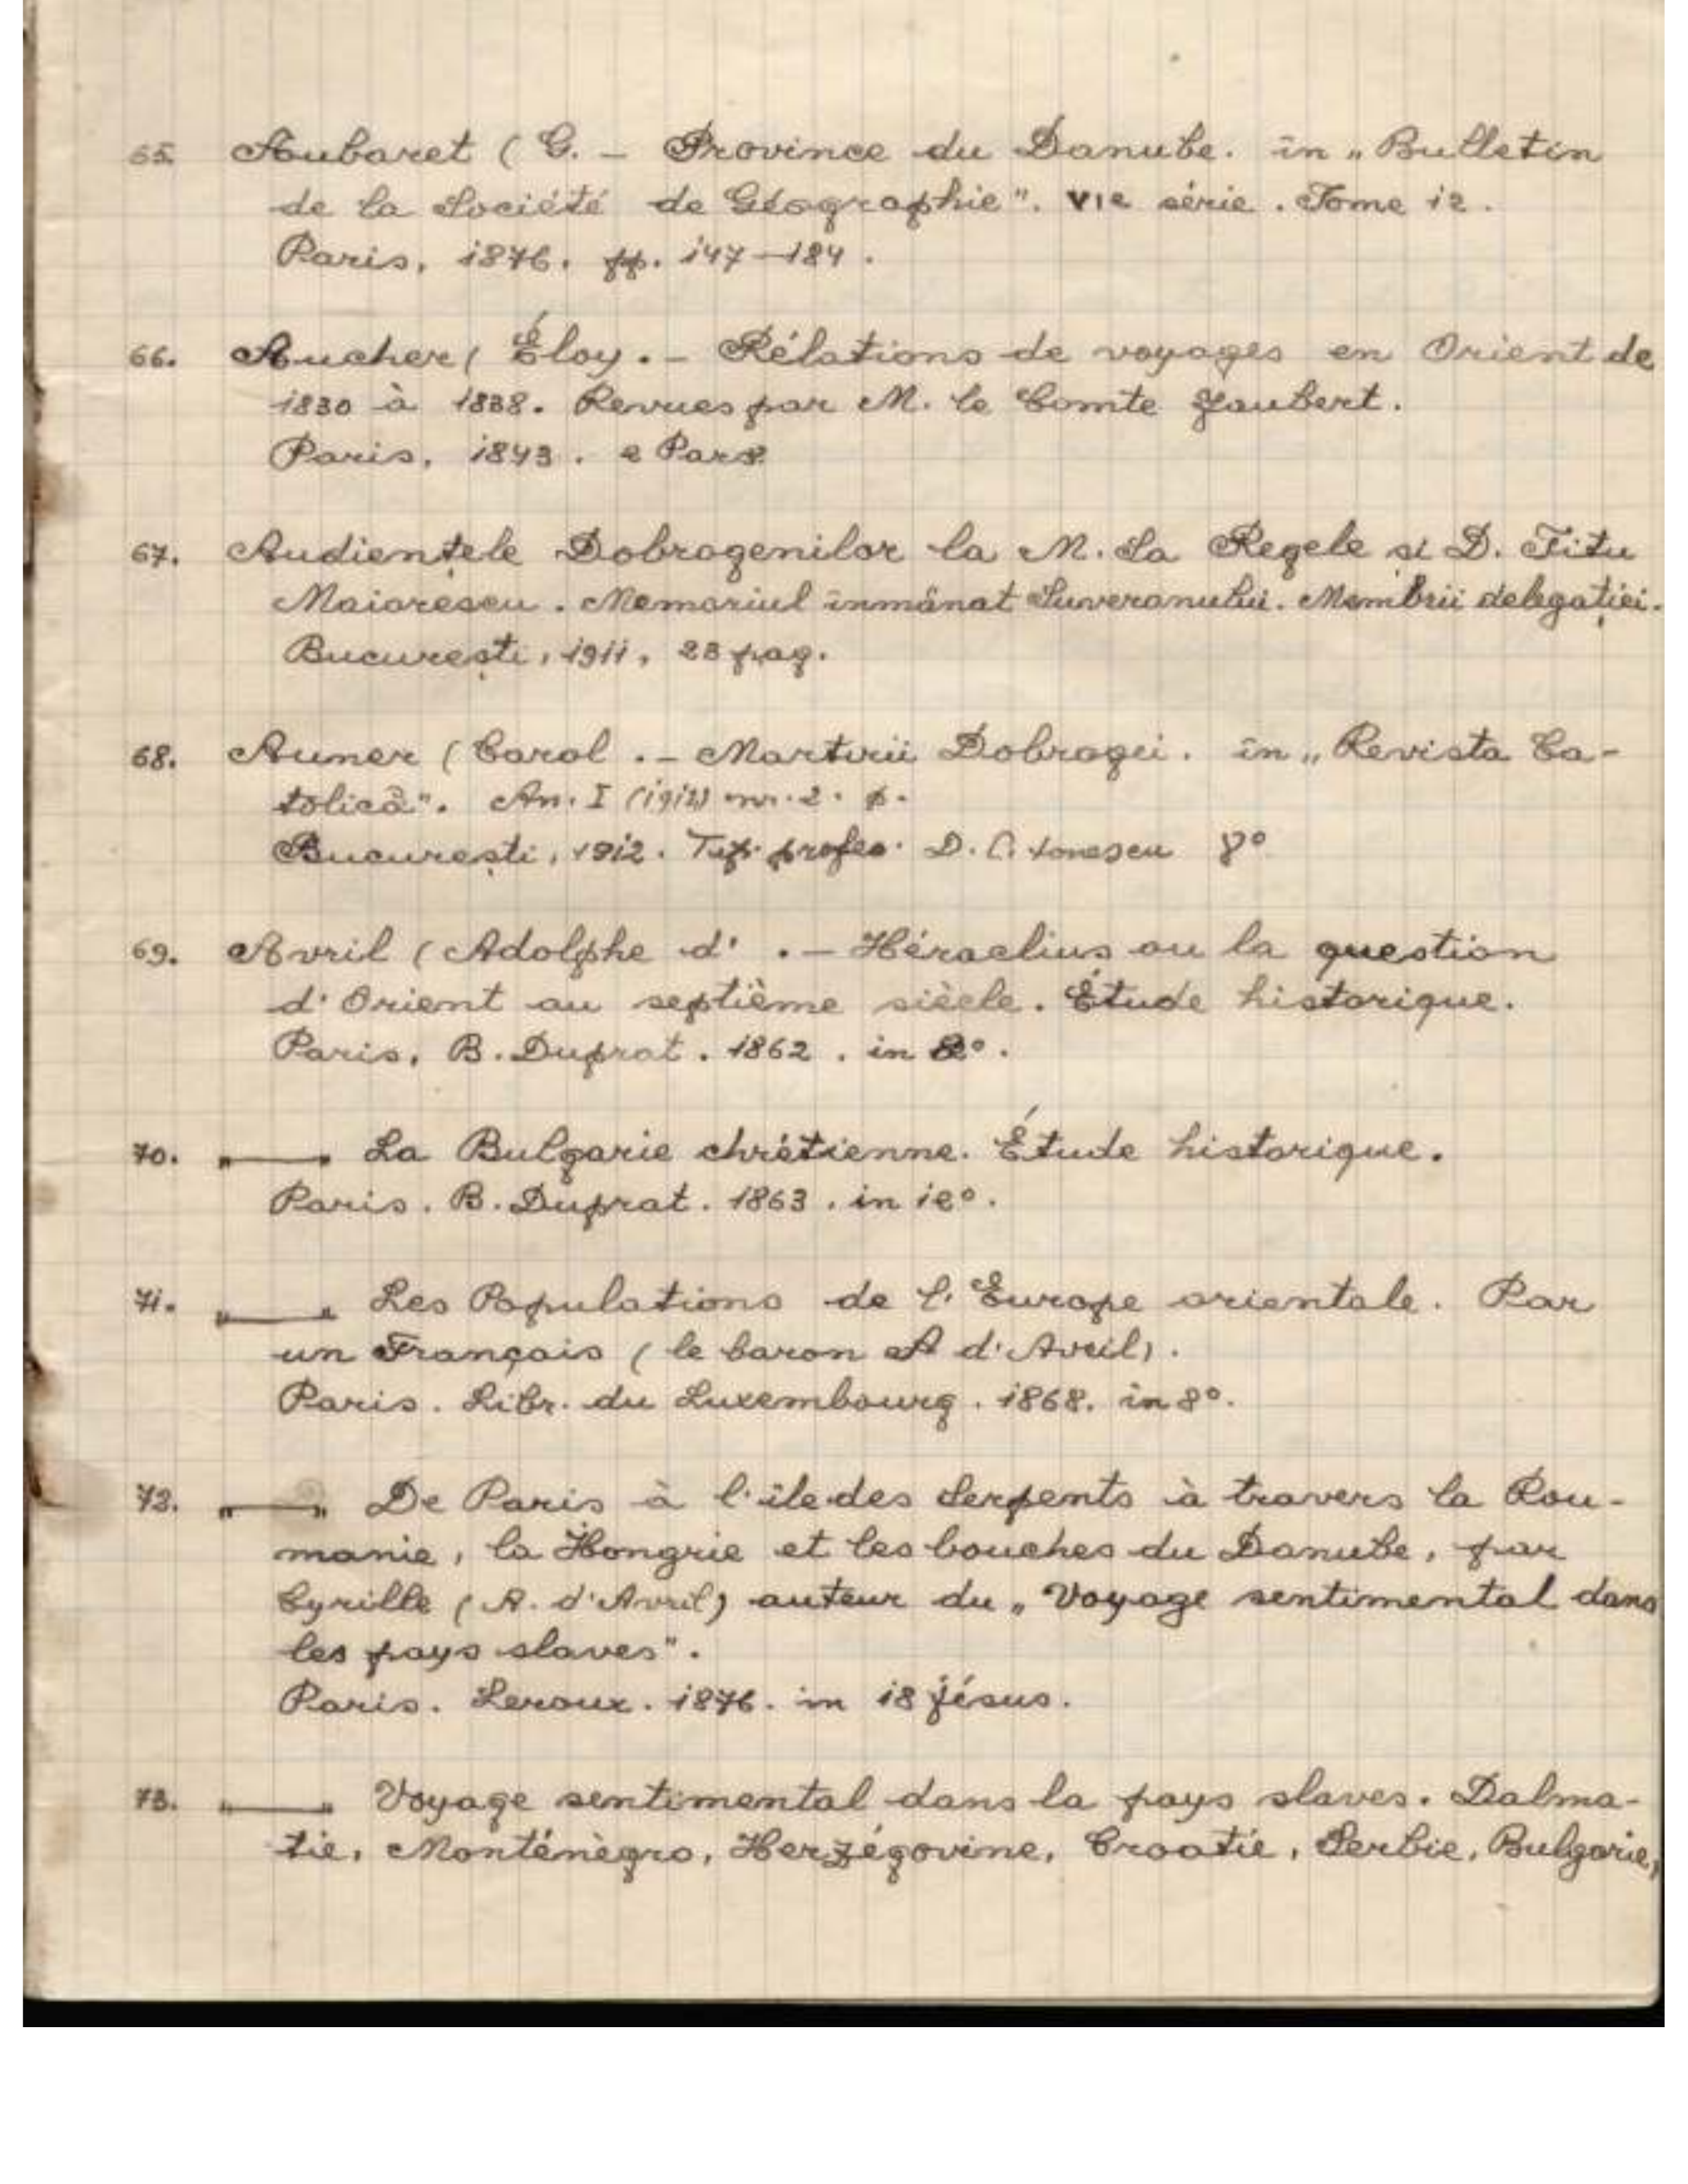 65. Aubaret ( G. - Province du Danube. in „Bulletin
de la Société de Géographie". VIe série. Tome 12.
Paris, 1876. pp. 147-184.
66. Aucher ( Éloy. - Rélations de voyages en Orient de
1830 à 1838. Revues par M. le Comte Jaubert.
Paris, 1843. 2 Part
67. Audiențele Dobrogenilor la M. Sa Regele și D. Titu
Maiorescu. Memoriul înmânat Suveranului. Membrii delegației.
București, 1911, 23 pag.
68. Auner ( Carol. - Martirii Dobrogei. în „Revista Ca-
tolică". An. I (1912) nr. 2. p.
București, 1912. Tip. profes. D. C. Ionescu 8°
69. Avril ( Adolphe d' . - Héraclius ou la question
d'Orient au septième siècle. Étude historique.
Paris, B. Duprat. 1862. in 8°.
70. „—„ La Bulgarie chrétienne. Étude historique.
Paris. B. Duprat. 1863. in 12°.
71. „—„ Les Populations de l'Europe orientale. Par
un Français ( le baron A d'Avril).
Paris. Libr. du Luxembourg. 1868. in 8°.
72. „—„ De Paris à l'île des Serpents à travers la Rou-
manie, la Hongrie et les bouches du Danube, par
Cyrille (A. d'Avril) auteur du „Voyage sentimental dans
les pays slaves".
Paris. Leroux. 1876. in 18 jésus.
73. „—„ Voyage sentimental dans la pays slaves. Dalma-
tie, Monténègro, Herzégovine, Croatie, Serbie, Bulgarie,